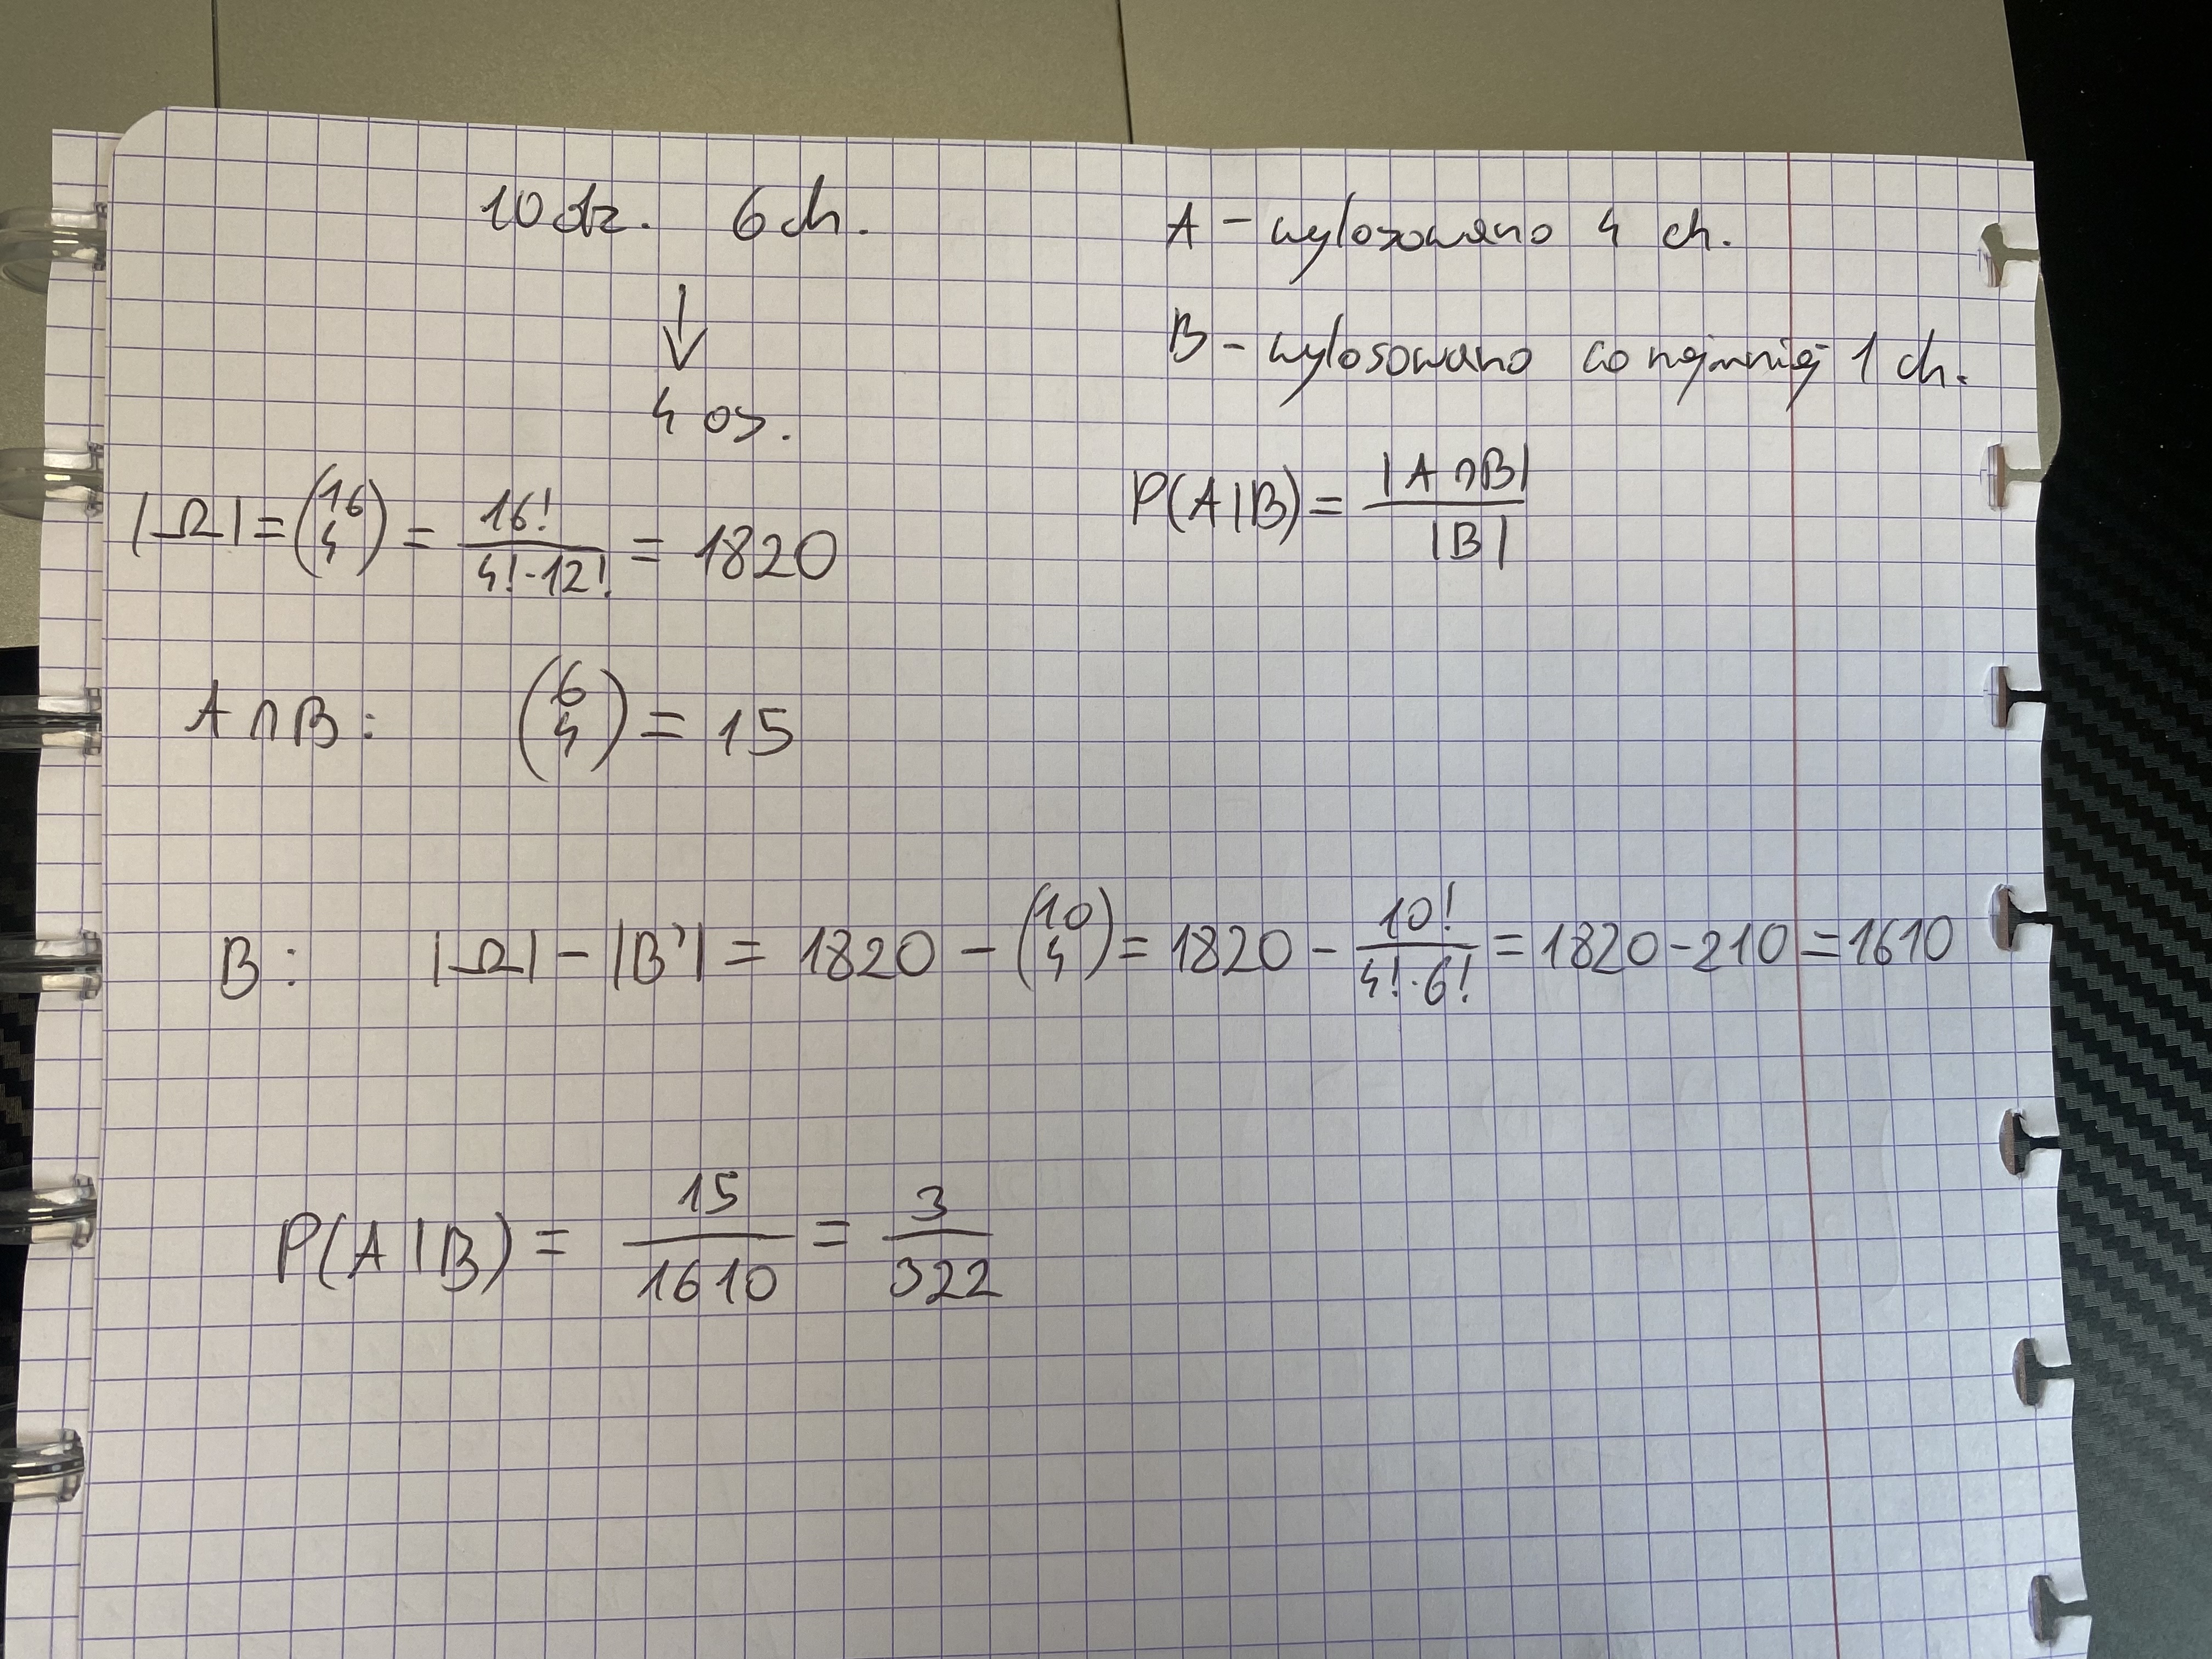 10 dz. 6 ch.
↓
4 os.
A - wylosowano 4 ch.
B - wylosowano co najmniej 1 ch.
P(A|B) = |A∩B| / |B|
|Ω| = (16 4) = 16! / 4!·12! = 1820
A∩B: (6 4) = 15
B: |Ω| - |B'| = 1820 - (10 4) = 1820 - 10! / 4!·6! = 1820 - 210 = 1610
P(A|B) = 15 / 1610 = 3 / 322